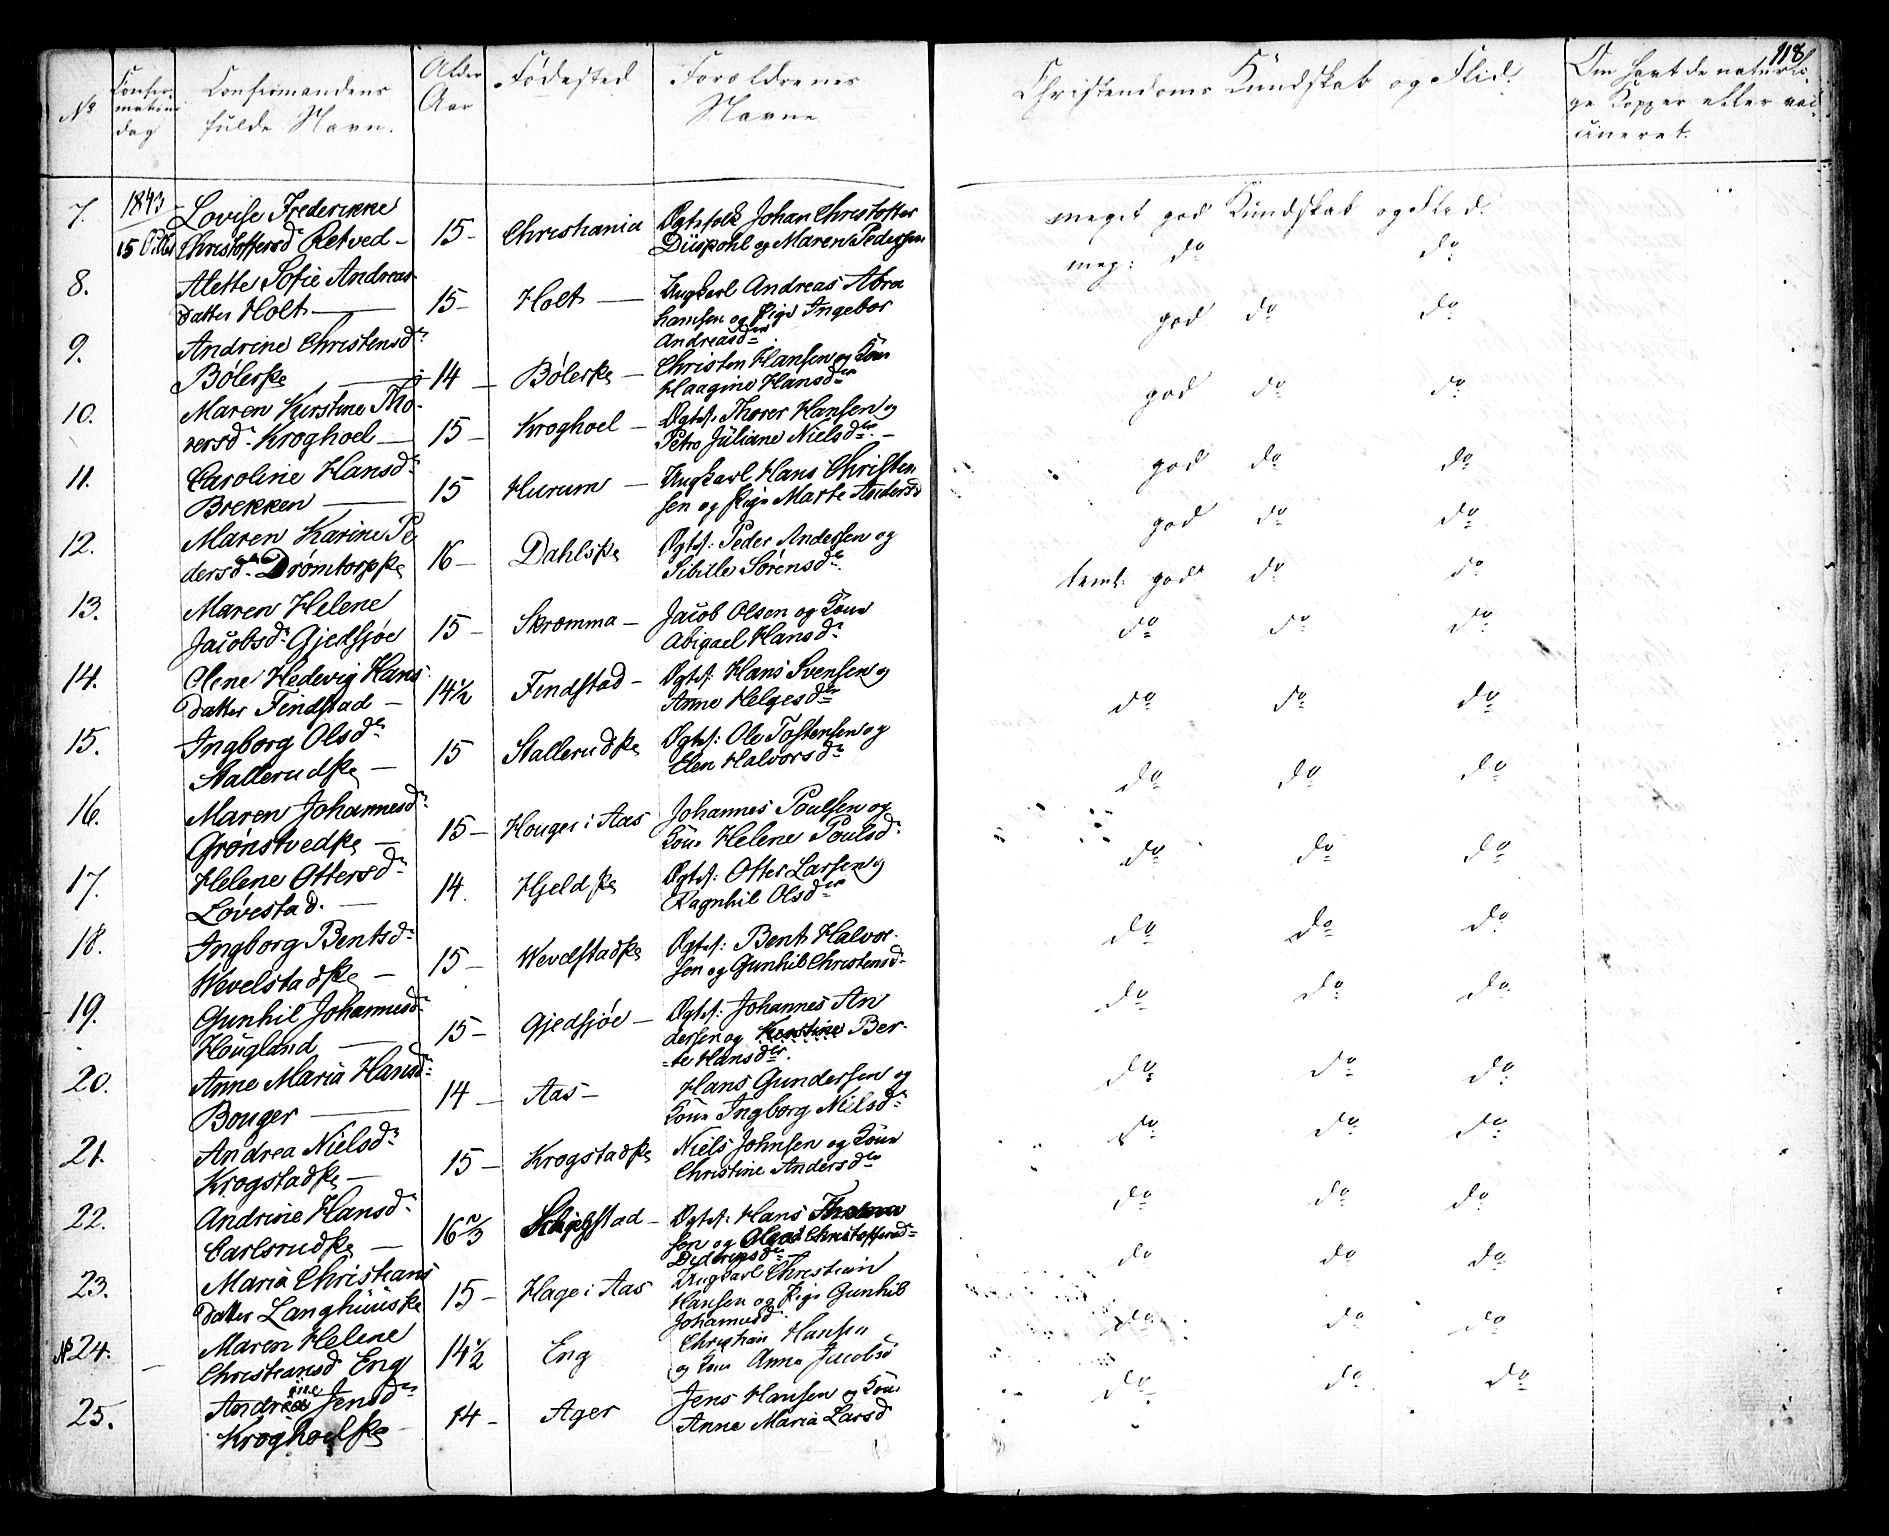 118
No
Confir-
mations
dag
Confirmandens
fulde Navn.
Alder
Aar
Fødested
Forældrenes
Navne
Christendoms Kundskab og Flid.
Om havt de naturli-
ge Kopper eller vac-
cineret.
7. 1843 Lovise Frederikke
15 Octbr Christoffersd Retved - 15 - Christiania Ægtefolk Johan Christoffer
Düspohl og Maren Pedersen
meget god Kundskab og Flid.
8. Alette Sofie Andreas
datter Holt 15 - Holt Ungkarl Andreas Abra
hamsen og Pige Ingebor
Andreasdr
meg: do do
9. Andrine Christensdr
Bølerske 14 - Bølerske - Christen Hansen og Kone
Haagine Hansdr
god do do
10. Maren Kirstine Tho-
rersdr Kroghoel 15 - Kroghoel - Ægtef. Thorer Hansen og
Petro Juliane Nielsdr
god do do
11. Caroline Hansdr
Brekken 15 Hurum - Ungkarl Hans Christen
sen og Pige Marte Andersd
god do do
12. Maren Karine Pe
dersdr Drømtorpske 16 - Dahlske Ægtef: Peder Andersen og
Sibille Sørensdr
god do do
13. Maren Helene
Jacobsdr Gjedsjøe 15 - Skromma - Jacob Olsen og Kone
Abigael Hansdr
teml. god do do
14. Olene Hedevig Hans
datter Findstad - 14 1/2 Findstad - Ægtef: Hans Svensen og
Anne Helgesdr
do do do
15. Ingborg Olsdr
Stallerudske - 15 Stallerudske Ægtef: Ole Tostensen og
Elen Halvorsdr
do do do
16. Maren Johannesdr
Grønstvedske - 15 - Houger i Aas Johannes Poulsen og
Kone Helene Poulsdr
do do do
17. Helene Ottersdr
Løvestad. - 14. Hjeldske Ægtef: Otter Larsen og
Ragnhil Olsdr
do do do
18. Ingborg Bentsdr
Wevelstadske - 15 - Wevelstadske Ægtef: Bent Halvor-
sen og Gunhil Christensdr
do do do
19. Gunhil Johannesdr
Hougland 15 - Gjedsjøe - Ægtef: Johannes An
dersen og Kerstine Ber-
te Hansdr
do do do
20. Anne Maria Hansdr
Bonger 14 - Aas - Hans Gundersen og
Kone Ingborg Nielsdr
do do do
21. Andrea Nielsdr
Krogstadske - 15 - Krogstadske Niels Johnsen og Kone
Christine Andersdr
do do do
22. Andrine Hansdr
Carlsrudske - 16 2/3 Ægtef: Hans
sen og Christoffersdr
do do do
23. Maria Christians
datter Langhuuske 15 - Hage i Aas Ungkarl Christian
Hansen og Pige Gunhil
Johannesd
do do do
No 24. Maren Helene
Christiansd Eng 14 1/2 Eng Christian Hansen
og Kone Anne Jacobsd
do do do
25. Andrea ine Jensdr
Kroghoelske - 14 - Ager Jens Hansen og Kone
Anne Maria Larsd
do do do